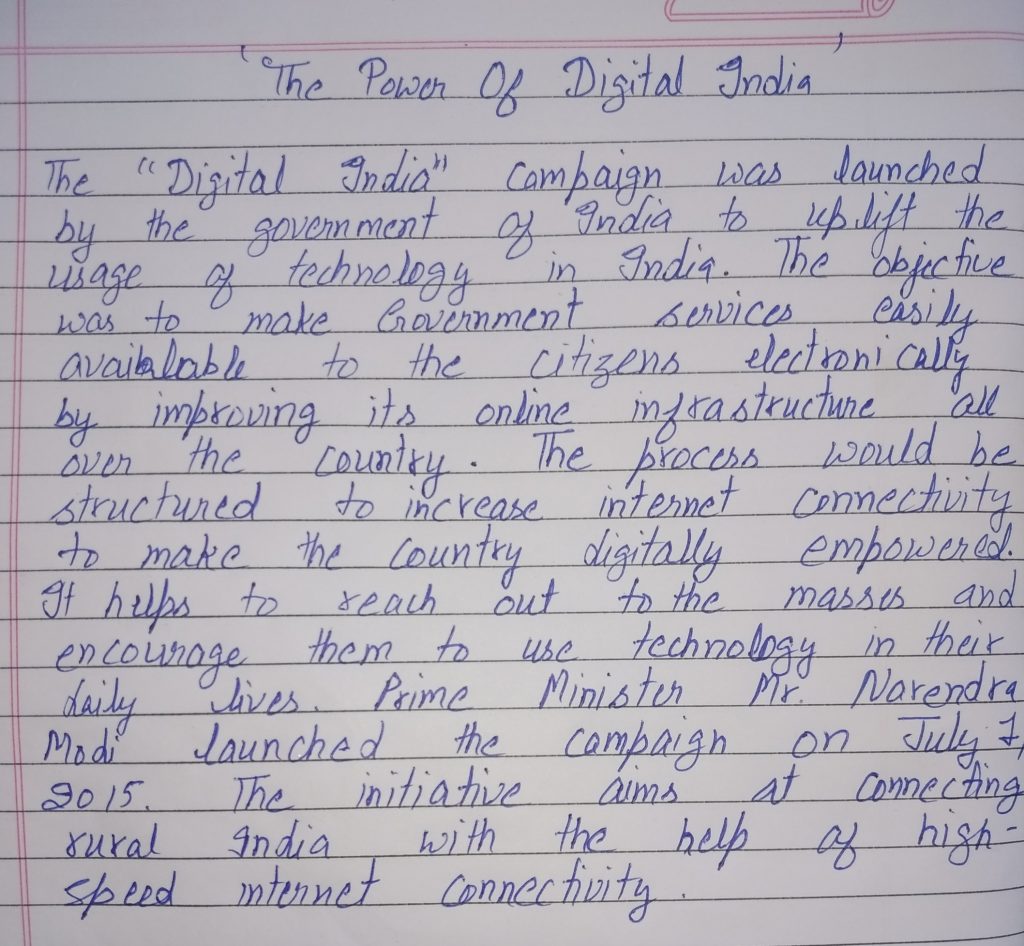 'The Power Of Digital India'
The "Digital India" campaign was launched
by the government of India to uplift the
usage of technology in India. The objective
was to make Government services easily
available to the citizens electronically
by improving its online infrastructure all
over the country. The process would be
structured to increase internet connectivity
to make the country digitally empowered.
It helps to reach out to the masses and
encourage them to use technology in their
daily lives. Prime Minister Mr. Narendra
Modi launched the campaign on July 1,
2015. The initiative aims at connecting
rural India with the help of high-
speed internet connectivity.